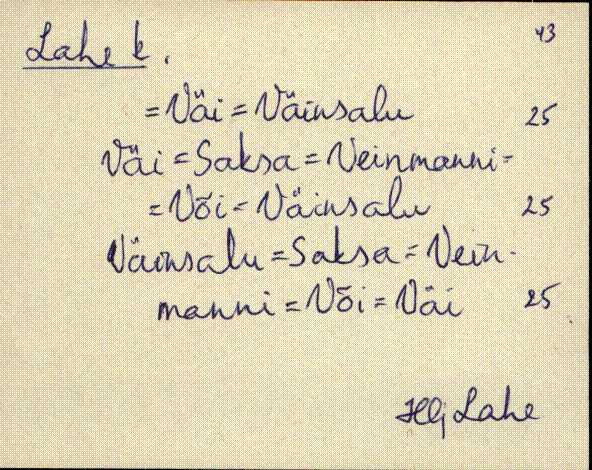 43
Lahe k.
=Väi=Väinsalu 25
Väi=Saksa=Veinmanni=
=Või=Väinsalu 25
Väinsalu=Saksa=Vein-
manni=Või=Väi 25
Lahe